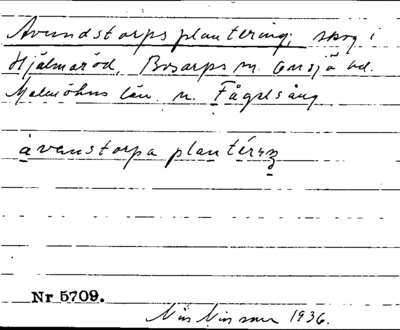 Avundstorps plantering, skog i
Hjälmaröd, Bosarps sn. Onsjö hd.
Malmöhus län. n. Fågelsång
åvanstorpa plantéring
Nr 5709.
Nils Nilsson 1936.